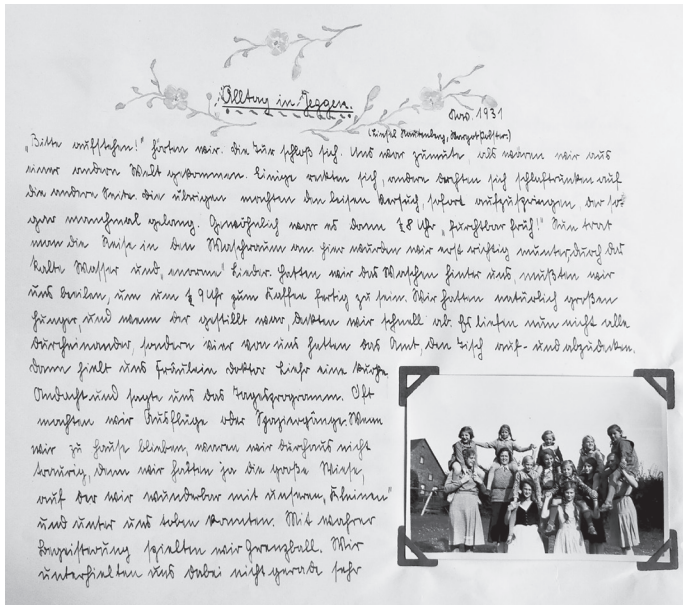 Alltag in Jeggen.
Nov. 1931
(Liesel Rautenberg, Margot Lobster)
„Bitte aufstehen!" hörten wir. Die Tür schloß sich. Uns war zumute, als wären wir aus
einer andere Welt gekommen. Einige reckten sich, andere drehten sich schlaftrunken auf
die andere Seite. Die übrigen machten den leisen Versuch, sofort aufzuspringen, der so-
gar manchmal gelang. Gewöhnlich war es dann ½8 Uhr „furchtbar früh!" Nun trat
man die Reise in den Waschraum an. Hier wurden wir erst richtig munter, durch das
kalte Wasser und „enorme" Lieder. Hatten wir das Waschen hinter uns, mußten wir
uns beeilen, um um ½ 9 Uhr zum Kaffee fertig zu sein. Wir hatten natürlich großen
Hunger, und wenn der gestillt war, deckten wir schnell ab. Es liefen nun nicht alle
durcheinander, sondern vier von uns hatten das Amt, den Tisch auf- und abzudecken.
Dann hielt uns Fräulein Doktor Liehr eine kurze
Andacht und sagte uns das Tagesprogramm. Oft
machten wir Ausflüge oder Spaziergänge. Wenn
wir zu Hause blieben, waren wir durchaus nicht
traurig, denn wir hatten ja die große Wiese,
auf der wir wunderbar mit unseren „Kleinen"
und unter uns toben konnten. Mit wahrer
Begeisterung spielten wir Grenzball. Wir
unterhielten uns dabei nicht gerade sehr